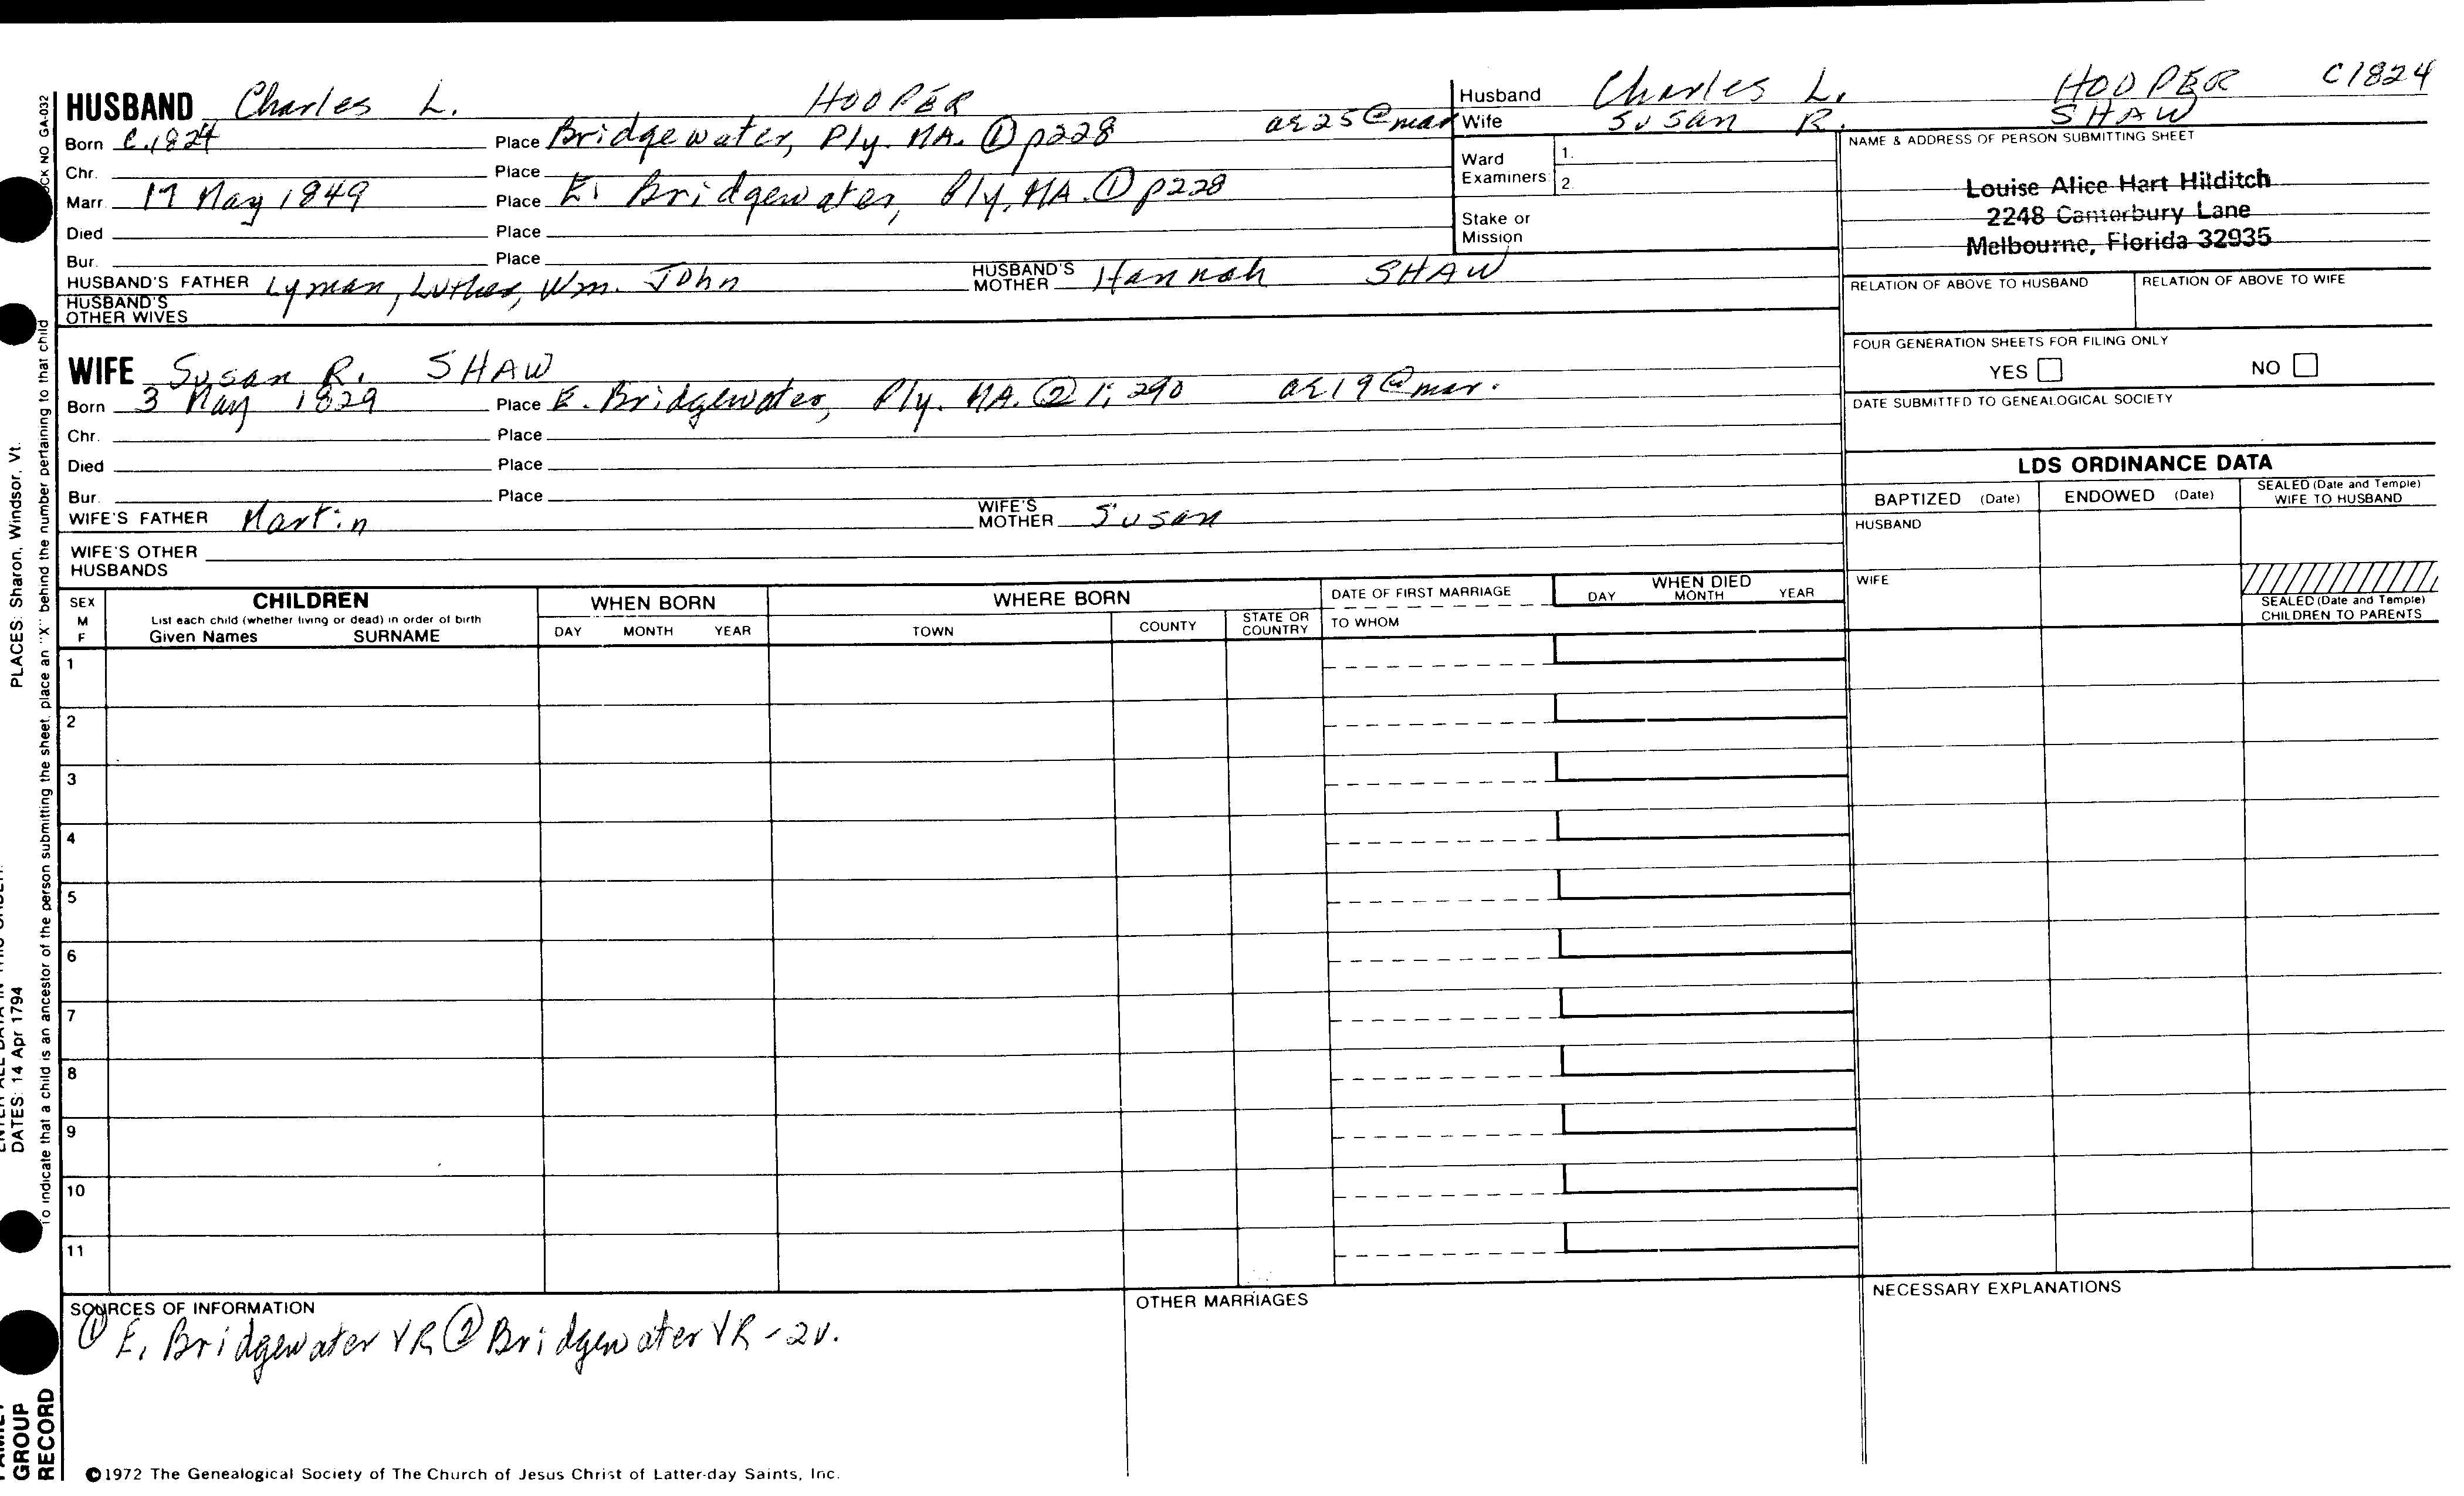 HUSBAND Charles L. HOOPER
Born c.1824 Place Bridgewater, Ply. MA. ① p228 ae 25 @ mar
Chr. Place
Marr. 17 May 1849 Place E. Bridgewater, Ply, MA. ① p228
Died Place
Bur. Place
HUSBAND'S FATHER Lyman, Luther, Wm. John HUSBAND'S MOTHER Hannah SHAW
HUSBAND'S OTHER WIVES
Husband Charles L. HOOPER C1824
Wife Susan R. SHAW
Ward Examiners 1.
2.
Stake or Mission
NAME & ADDRESS OF PERSON SUBMITTING SHEET
Louise Alice Hart Hilditch
2248 Canterbury Lane
Melbourne, Florida 32935
RELATION OF ABOVE TO HUSBAND RELATION OF ABOVE TO WIFE
FOUR GENERATION SHEETS FOR FILING ONLY
YES NO
DATE SUBMITTED TO GENEALOGICAL SOCIETY
WIFE Susan R. SHAW
Born 3 May 1829 Place E. Bridgewater, Ply. MA. ② 1; 290 ae 19 @ mar.
Chr. Place
Died Place
Bur. Place
WIFE'S FATHER Martin WIFE'S MOTHER Susan
WIFE'S OTHER HUSBANDS
LDS ORDINANCE DATA
BAPTIZED (Date) ENDOWED (Date) SEALED (Date and Temple) WIFE TO HUSBAND
HUSBAND
WIFE
SEALED (Date and Temple) CHILDREN TO PARENTS
SEX M F
CHILDREN
List each child (whether living or dead) in order of birth
Given Names SURNAME
WHEN BORN
DAY MONTH YEAR
WHERE BORN
TOWN COUNTY STATE OR COUNTRY
DATE OF FIRST MARRIAGE
TO WHOM
WHEN DIED
DAY MONTH YEAR
1
2
3
4
5
6
7
8
9
10
11
SOURCES OF INFORMATION
① E. Bridgewater VR ② Bridgewater VR - 2v.
OTHER MARRIAGES
NECESSARY EXPLANATIONS
©1972 The Genealogical Society of The Church of Jesus Christ of Latter-day Saints, Inc.
GROUP
RECORD
DATES: 14 Apr 1794
PLACES: Sharon, Windsor, Vt.
To indicate that a child is an ancestor of the person submitting the sheet, place an "X" behind the number pertaining to that child
NO GA-032